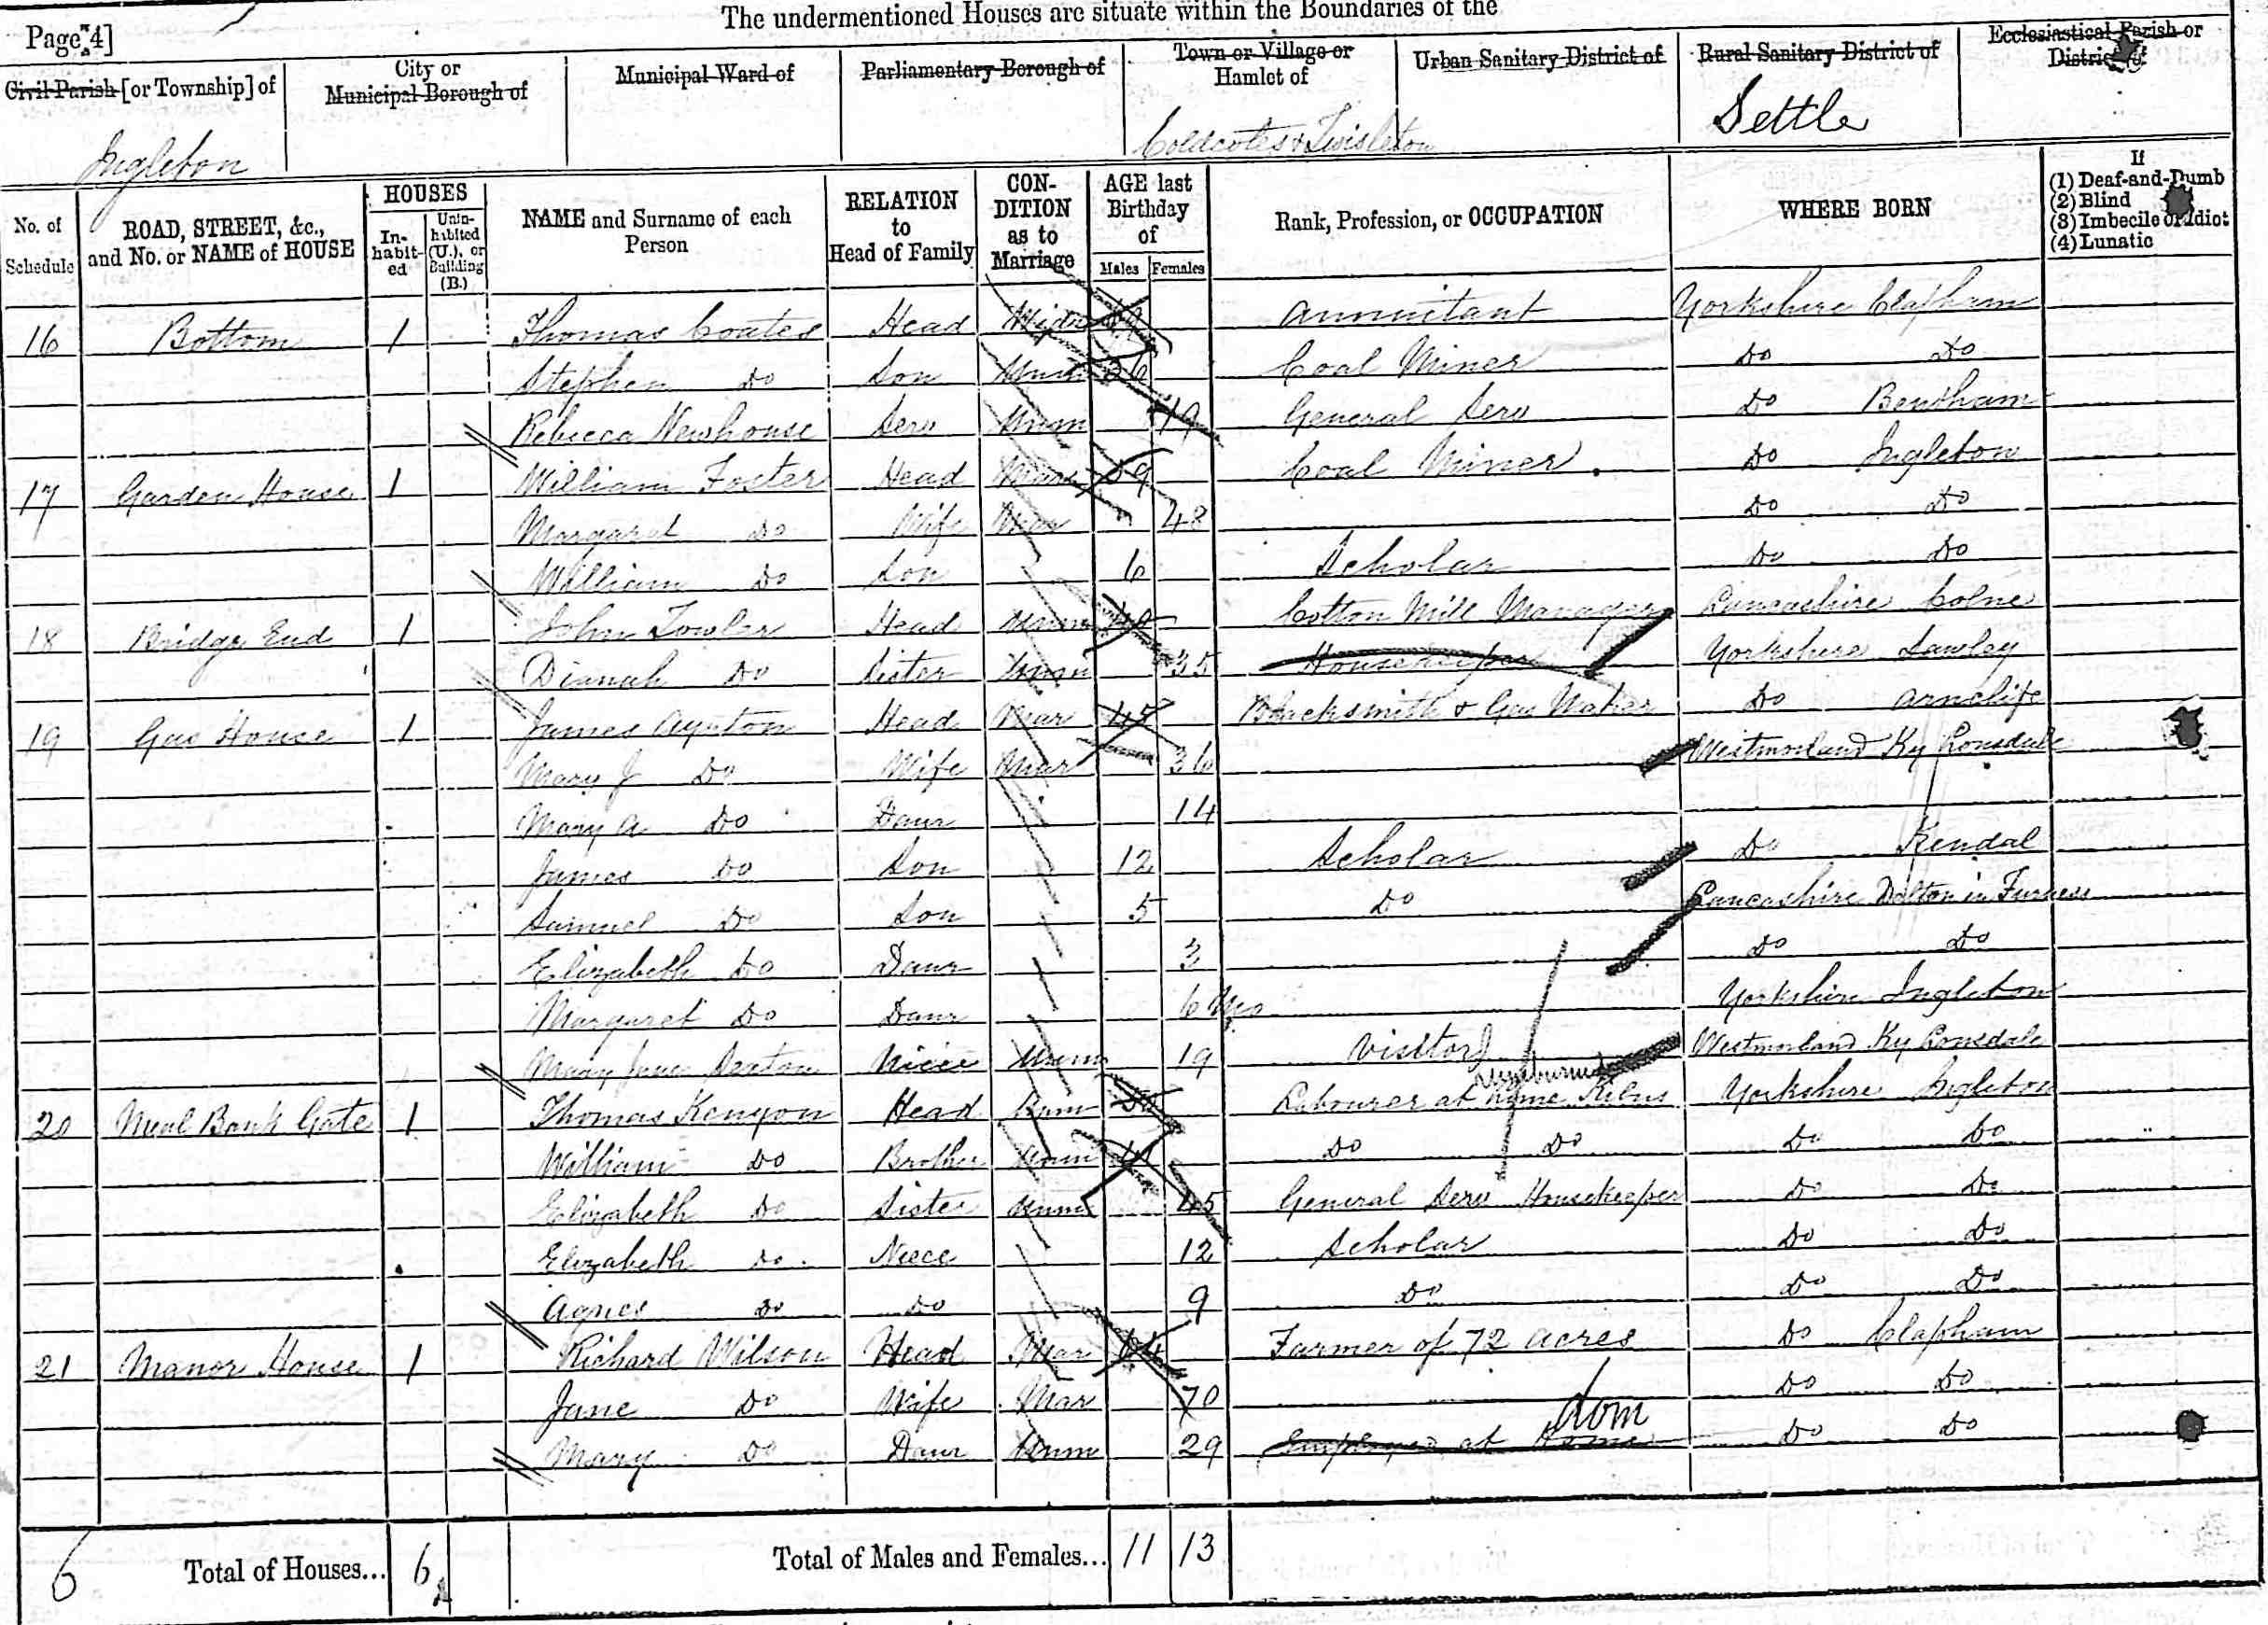 The undermentioned Houses are situate within the Boundaries of the
Page 4]
Civil Parish [or Township] of
City or Municipal Borough of
Municipal Ward of
Parliamentary Borough of
Town or Village or Hamlet of
Urban Sanitary District of
Rural Sanitary District of
Ecclesiastical Parish or District of
Ingleton
Coldcotes & Twisleton
Settle
No. of Schedule
ROAD, STREET, &c., and No. or NAME of HOUSE
HOUSES
Inhabited
Uninhabited (U.), or Building (B.)
NAME and Surname of each Person
RELATION to Head of Family
CONDITION as to Marriage
AGE last Birthday of
Males Females
Rank, Profession, or OCCUPATION
WHERE BORN
If
(1) Deaf-and-Dumb
(2) Blind
(3) Imbecile or Idiot
(4) Lunatic
16 Bottom 1 Thomas Coates Head Widr Annuitant Yorkshire Clapham
Stephen Do Son Unm 36 Coal Miner Do Do
Rebecca Newhouse Serv Unm 19 General Serv Do Bentham
17 Garden House 1 William Foster Head Mar 59 Coal Miner Do Ingleton
Margaret Do Wife Mar 48 Do Do
William Do Son 6 Scholar Do Do
18 Bridge End 1 John Towler Head Unm Cotton Mill Manager Lancashire Colne
Dianah Do Sister Unm 35 Housekeeper Yorkshire Sawley
19 Gas House 1 James Ayrton Head Mar 45 Blacksmith & Gas Maker Do Arncliffe
Mary J Do Wife Mar 36 Westmorland Ky Lonsdale
Mary A Do Daur 14
James Do Son 12 Scholar Do Kendal
Samuel Do Son 5 Do Lancashire Dalton in Furness
Elizabeth Do Daur 3 Do Do
Margaret Do Daur 6 Mo Yorkshire Ingleton
Mary Jane Saxton Niece Unm 19 Visitor Westmorland Ky Lonsdale
20 Meal Bank Gate 1 Thomas Kenyon Head Unm Labourer at Lime Kilns Yorkshire Ingleton
William Do Brother Unm Do Do Do Do
Elizabeth Do Sister Unm 45 General Serv Housekeeper Do Do
Elizabeth Do Niece 12 Scholar Do Do
Agnes Do Do 9 Do Do Do
21 Manor House 1 Richard Wilson Head Mar Farmer of 72 acres Do Clapham
Jane Do Wife Mar 70 Do Do
dom
Mary Do Daur Unm 29 Employed at Home Do Do
6 Total of Houses... 6
Total of Males and Females... 11 13